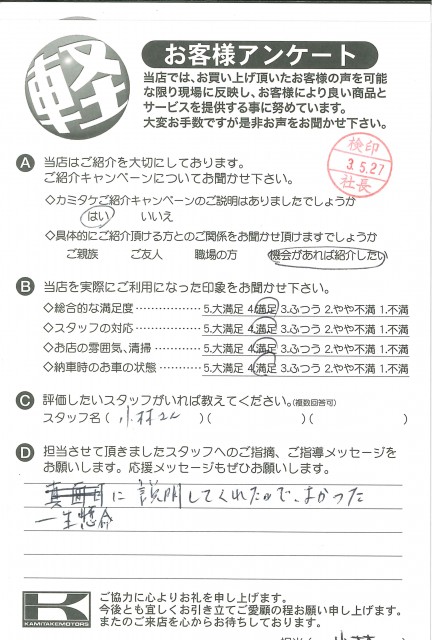 軽
お客様アンケート
当店では、お買い上げ頂いたお客様の声を可能
な限り現場に反映し、お客様により良い商品と
サービスを提供する事に努めています。
大変お手数ですが是非お声をお聞かせ下さい。
検印
3.5.27
社長
A 当店はご紹介を大切にしております。
ご紹介キャンペーンについてお聞かせ下さい。
◇カミタケご紹介キャンペーンのご説明はありましたでしょうか
はい いいえ
◇具体的にご紹介頂ける方とのご関係をお聞かせ頂けますでしょうか
ご親族 ご友人 職場の方 機会があれば紹介したい
B 当店を実際にご利用になった印象をお聞かせ下さい。
◇総合的な満足度 5.大満足 4.満足 3.ふつう 2.やや不満 1.不満
◇スタッフの対応 5.大満足 4.満足 3.ふつう 2.やや不満 1.不満
◇お店の雰囲気、清掃 5.大満足 4.満足 3.ふつう 2.やや不満 1.不満
◇納車時のお車の状態 5.大満足 4.満足 3.ふつう 2.やや不満 1.不満
C 評価したいスタッフがいれば教えてください。(複数回答可)
スタッフ名 ( 小林さん )( )( )
D 担当させて頂きましたスタッフへのご指摘、ご指導メッセージを
お願いします。応援メッセージもぜひお願いします。
真面目に説明してくれたので、よかった
一生懸命
K
KAMITAKEMOTORS
ご協力に心よりお礼を申し上げます。
今後とも宜しくお引き立てご愛顧の程お願い申し上げます。
またのご来店を心からお待ちしております。
担当( 小林 )